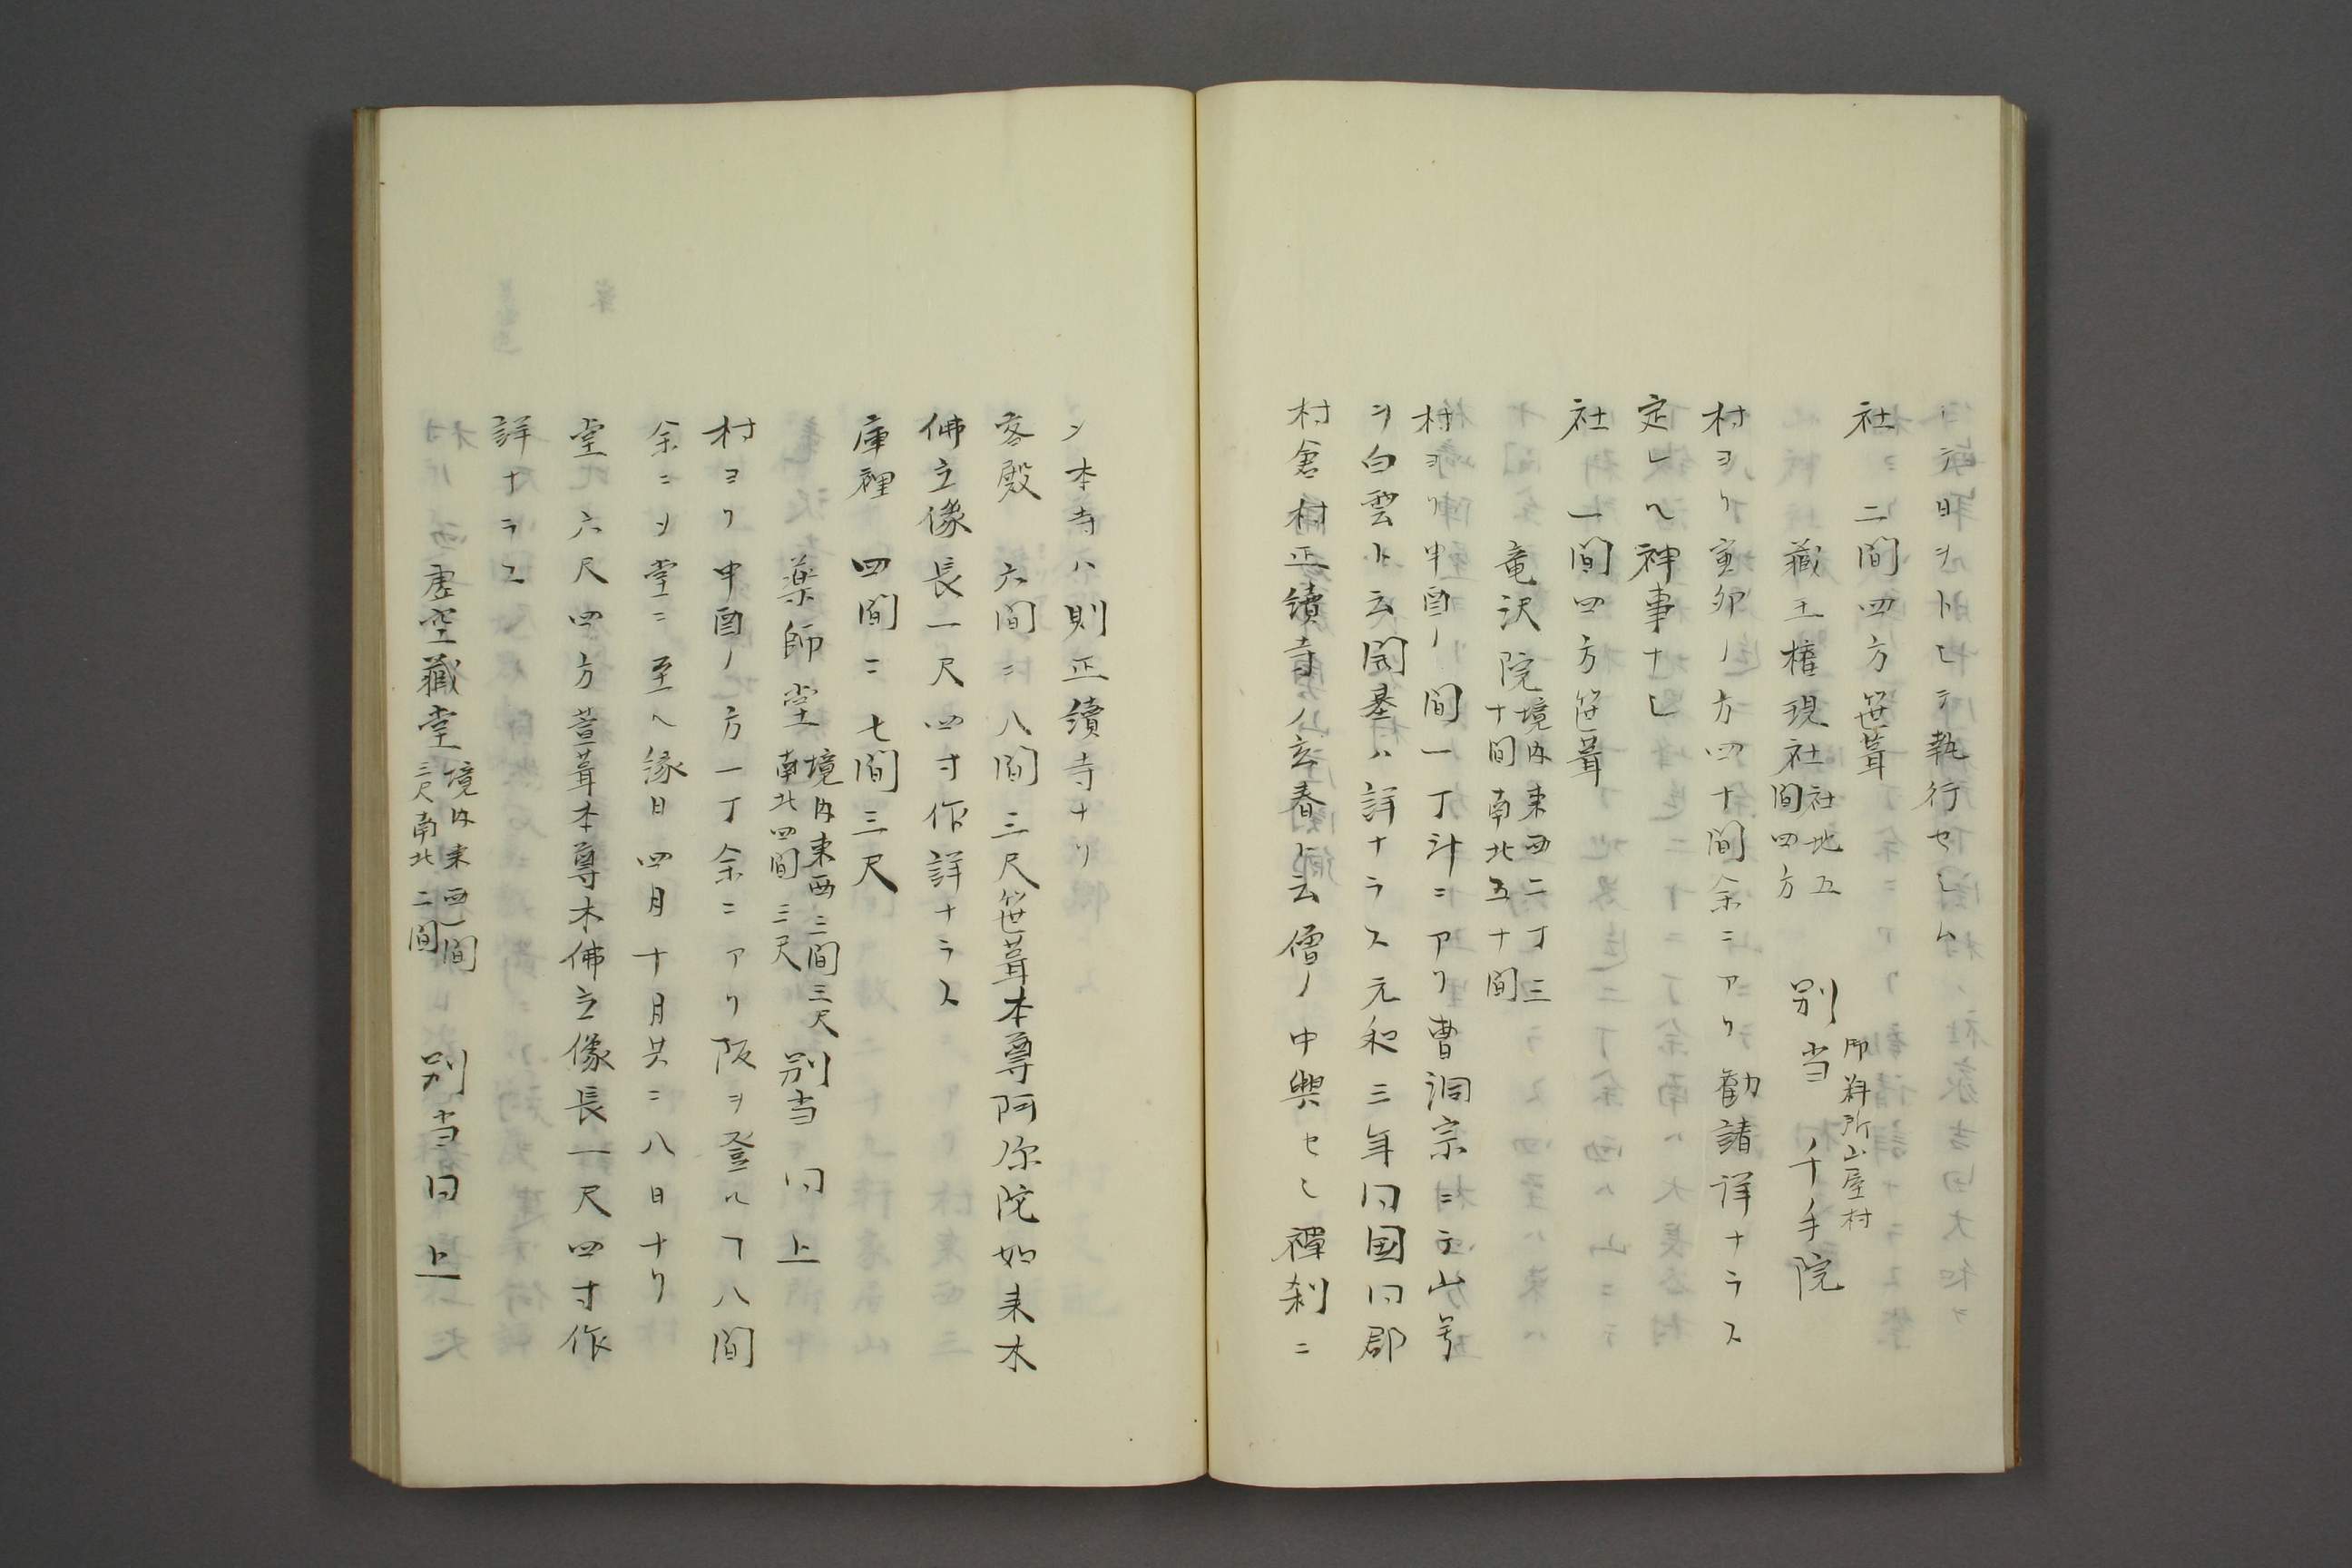 シテ日ヲトしテ執行セしム
社　二間四方笹葺
蔵王権現社 社地五間四方 別当 御料所山屋村ノ千手院
村ヨリ寅卯ノ方四十間余ニアリ勧請詳ナラス
定レル神事ナし
社　一間四方笹葺
竜沢院 境内東西二丁三十間南北五十間
村ヨリ申酉ノ間一丁斗ニアリ曹洞宗ニテ山号
ヲ白雲ト云開基ハ詳ナラス元和三年同国同郡
村倉村正續寺ノ玄春ト云僧ノ中興セし禅刹ニ
シ本寺ハ則正續寺ナリ
客殿　六間ニ八間三尺笹葺本尊阿弥陀如来木
佛立像長一尺四寸作詳ナラス
庫裡　四間ニ七間三尺
薬師堂 境内東西三間三尺南北四間三尺 別当　同上
村ヨリ申酉ノ方一丁余ニアリ阪ヲ登ルヿ八間
余ニシ堂ニ至ル縁日四月十月共ニ八日ナリ
堂　六尺四方萱葺本尊木佛立像長一尺四寸作
詳ナラス
虚空蔵堂 境内東西一間三尺南北二間 別当同上